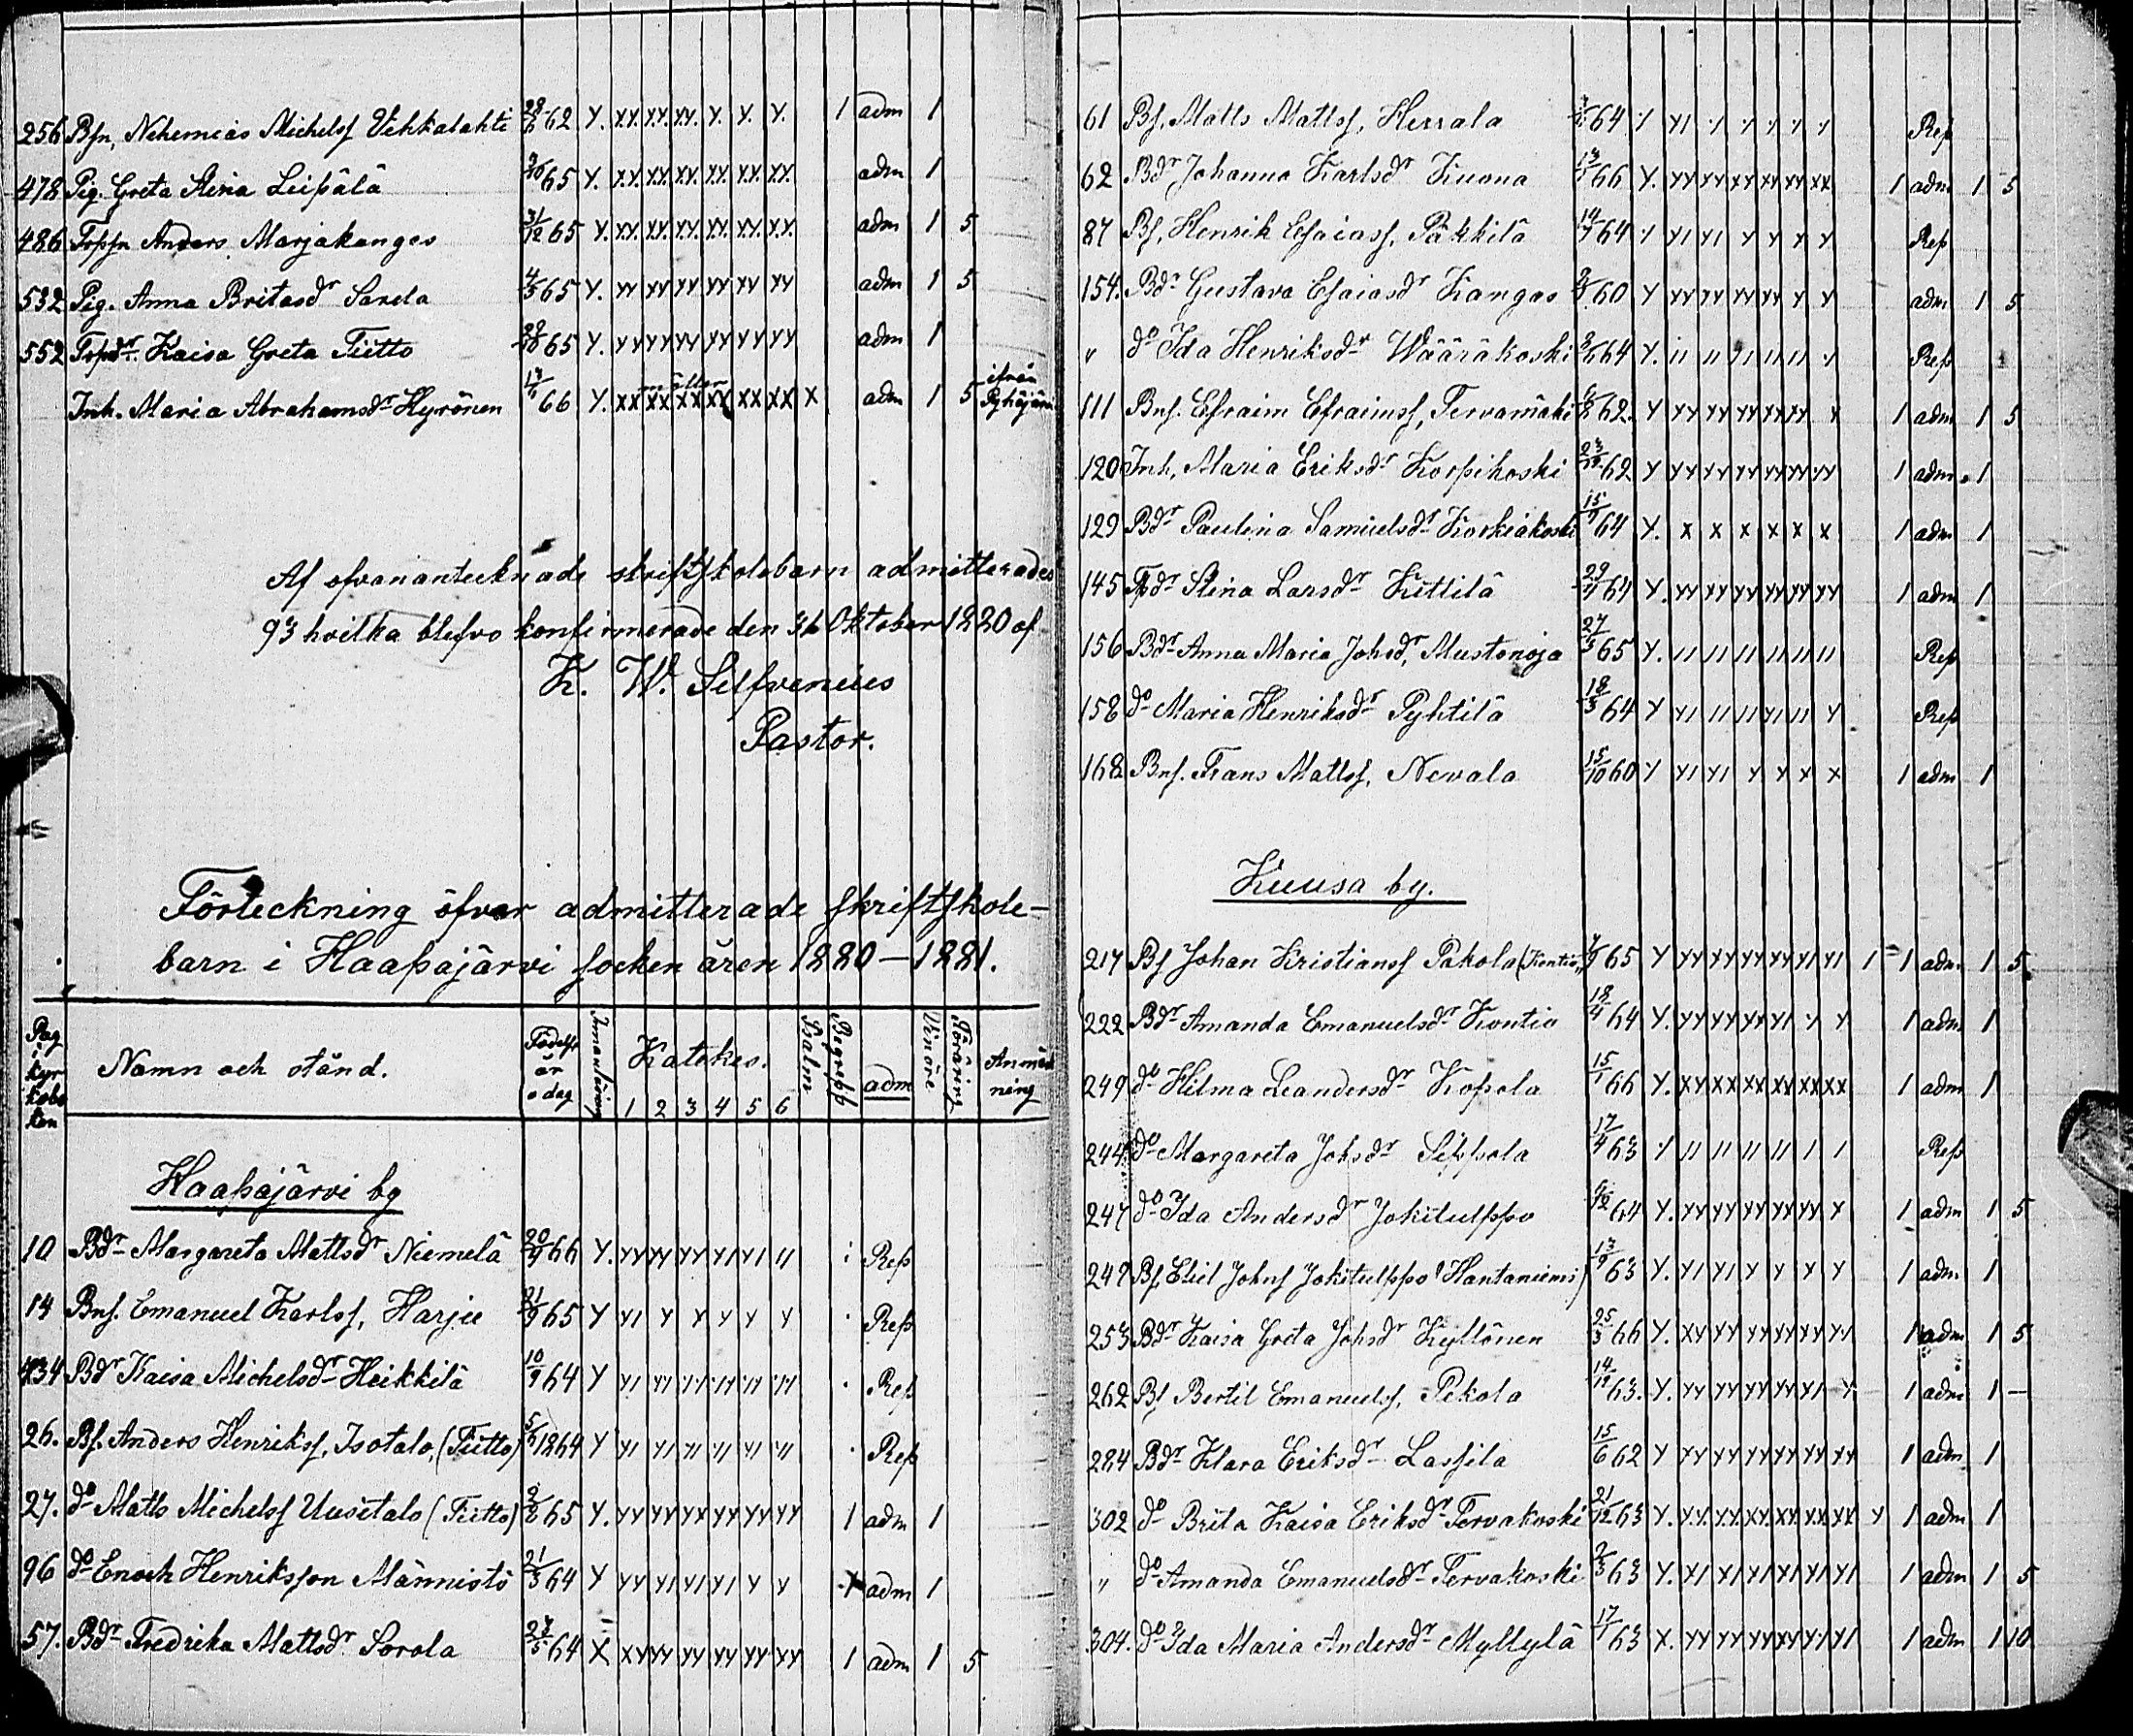 256 Bsn, Nehemias Michelsf Vehkalahti 28/6 62 Y. XX. XX. XX. Y. Y. Y. 1 adm 1
478 Pig. Greta Stina Leipälä 65 Y. XX. XX. XX. XX. XX. XX. adm 1
486 Anders Marjakangas 31/12 65 Y. XX. XX. XX. XX. XX. XX. adm 1 5
532 Pig. Anna Britasdr Sarela 4/3 65 Y. YY YY YY YY YY YY adm 1 5
552 Kaisa Greta Tiitto 65 Y. YY YY YY YY YY YY adm 1
ifrån
Inh. Maria Abrahamsdr Hyrönen 66 Y. XX XX XX XX XX XX X adm 1 5 Pyhäjärvi
Af ofvanantecknade skriftskolebarn admitterades
93 hvilka blefvo konfirmerade den 31 Oktober 1880 af
K. W. Silfvenius
Pastor.
Förteckning öfver admitterade skriftskole-
barn i Haapajärvi socken åren 1880—1881.
Pag i kyrkoboken Namn och stånd. Födelse år o dag Innanläsning Katekes. 1 2 3 4 5 6 Psalm Begrepp adm Vinöre Föräring Anmärkning
Haapajärvi by
10 Bdr Margareta Mattsdr Niemelä 20/9 66 Y. YY YY YY YI YI II Rep
14 Bns. Emanuel Karlss, Harju 21/9 65 Y YI Y Y Y Y Y Rep
Bdr Kaisa Michelsdr Heikkilä 10/9 64 Y YI YI YI YI YI YI Rep
26. Bs. Anders Henrikss, Isotalo, (Tiitto) 1864 Y YI YI YI YI YI YI Rep
27. do Matts Michelss Uusitalo (Tiitto) 65 Y. YY YY YX YY YY YY 1 adm 1
96 do Enoch Henriksson Männistö 21/3 64 Y YY YI YI YI Y Y adm 1
57. Bdr Fredrika Mattsdr Sorola 64 X XY YY YY YY YY YY 1 adm 1 5
61 Bs, Matts Mattss, Herrala 64 Rep
62 Bdr Johanna Karlsdr Kuona 66 Y. YY YY XX XX XX XX 1 adm 1 5
87 Bs, Henrik Esaiass, Päkkilä 64 YI YI Y Y Y Y Rep
154. Bdr Gustava Esaiasdr Kangas 60 Y YY YY YY YY Y Y adm 1 5
" do Ida Henriksdr Wääräkoski 64 Y. II II YI II II Rep
111 Bns. Efraim Efraimss, Tervamäki 62. Y YY YY YY YY YY Y 1 adm 1 5
120 Inh, Maria Eriksdr Korpikoski 62 Y YY YY YY YY YY YY 1 adm. 1
129 Bdr Paulina Samuelsdr Korkiakoski 15/9 64 Y. X X X X X X 1 adm 1
145 Stina Larsdr Kittilä 64 Y. YY YY YY YY YY YY 1 adm 1
156 Bdr Anna Maria Johsdr, Mustonoja 27/3 65 Y. II II II II II II Rep
158 do Maria Henriksdr Pyhtilä 18/3 64 Y YI II II YI II Y Rep
168 Bns. Frans Mattss, Nevala 15/10 60 Y YI YI Y Y X X 1 adm 1
Kuusa by.
217 Bs Johan Kristianss Pakola (Kontio) 65 Y YY YY YY YY YI YI 1 1 adm 1 5
222 Bdr Amanda Emanuelsdr Kontio 18/4 64 Y. YY YY YY YI Y Y 1 adm 1
249 do Hilma Leandersdr Kopola 15/1 66 Y. XX XX XX XX XX XX 1 adm 1
244 do Margareta Johsdr Seppola 17/4 63 II II II II I I Rep
247 do Ida Andersdr Jokitulppo 64 Y. YY YY YY YY Y X 1 adm 1 5
247 Bs, Eliel Johss Jokitulppo (Hantaniemi) 13/9 63 Y. YI YI Y Y Y Y 1 adm 1
253 Bdr Kaisa Greta Johsdr Kyllönen 25/3 66 Y. XY YY YY YY YY YY 1 adm 1 5
262 Bs Bertil Emanuelss, Pekola 14/12 63. Y. YY YY YY YY YI Y 1 adm 1 —
284 Bdr Klara Eriksdr Lassila 15/6 62 Y YY YY YY YY YY YY 1 adm 1
302 do Brita Kaisa Eriksdr Tervakoski 21/12 63 Y. YY. YY. XX. XX. XX. XX Y 1 adm 1
" do Amanda Emanuelsdr Tervakoski 63 Y. XI XI YI YI YI YI 1 adm 1 5
304. do Ida Maria Andersdr Myllylä 17/1 63 X. YY YY YY XY YY YI 1 adm 1 10